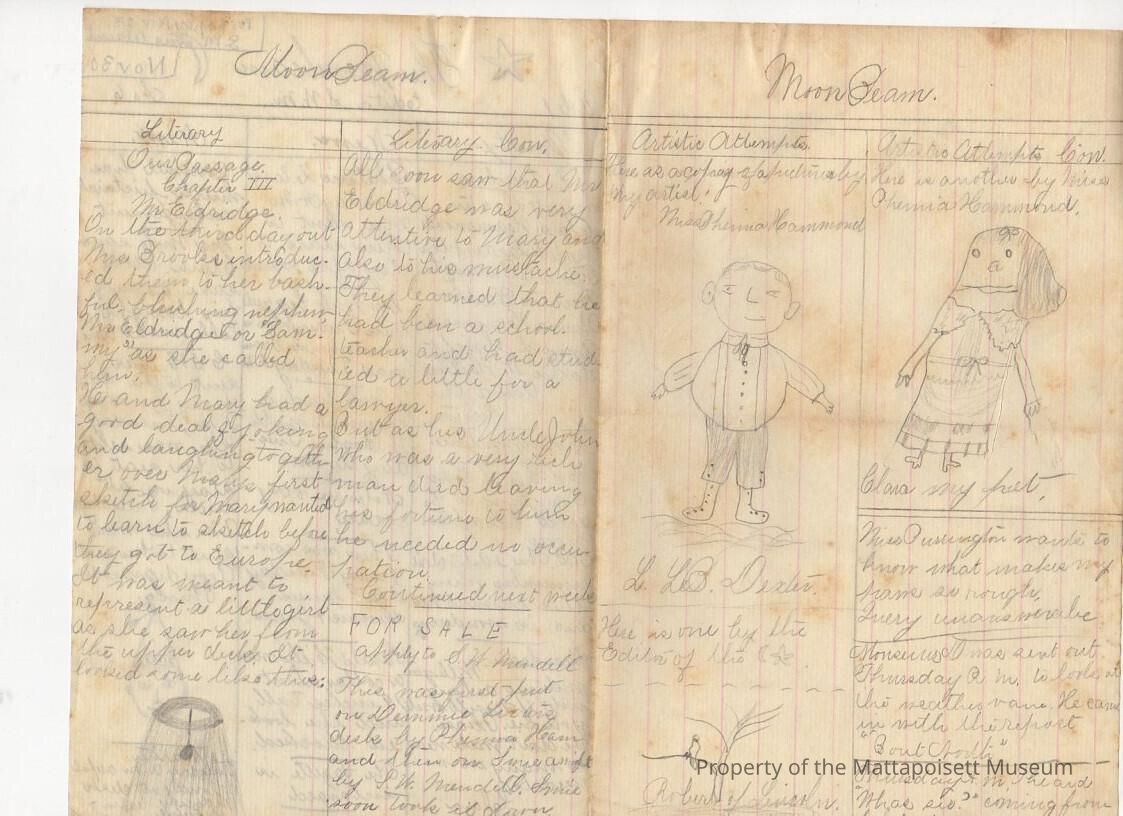 Moon Beam.
Literary
Our Passage.
Chapter III
Mr Eldridge.
On the third day out
Mrs Brooks introduc-
ed them to her bash-
ful, blushing nephew
Mr Eldridget or "Sam-
my" as she called
him.
He and Mary had a
good deal of joking
and laughing togeth-
er over Marys first
sketch for Mary wanted
to learn to sketch before
they got to Europe.
It was meant to
represent a little girl
as she saw her from
the upper deck. It
looked some like this:
Literary Con.
All soon saw that Mr
Eldridge was very
attentive to Mary and
also to his mustache.
They learned that he
had been a school-
teacher and had stud-
ied a little for a
lawyer.
But as his Uncle John
who was a very rich
man died leaving
his fortune to him
he needed no occu-
pation.
Continued next week
FOR SALE
apply to S. W. Mendell
This was first put
on
desk by Phennia Ham
and then on
by S. W. Mendell.
soon took it down
Moon Beam.
Artistic Attempts.
Here is a copy of a picture by
my artist.
Miss Phennia Hammond
L. L. B. Dexter.
Here is one by the
Editor of the
Robert of Lincoln.
Artistic Attempts Con.
Here is another by Miss
Phennia Hammond.
Clara my pet.
Miss Purrington wants to
know what makes my
paws so rough.
Query unanswerabe.
was sent out
Thursday P. M. to look at
the weather vane. He came
in with the report
"'Bout Chothi"
Thursday P. M. heard
"Whas sio?" coming from
Property of the Mattapoisett Museum